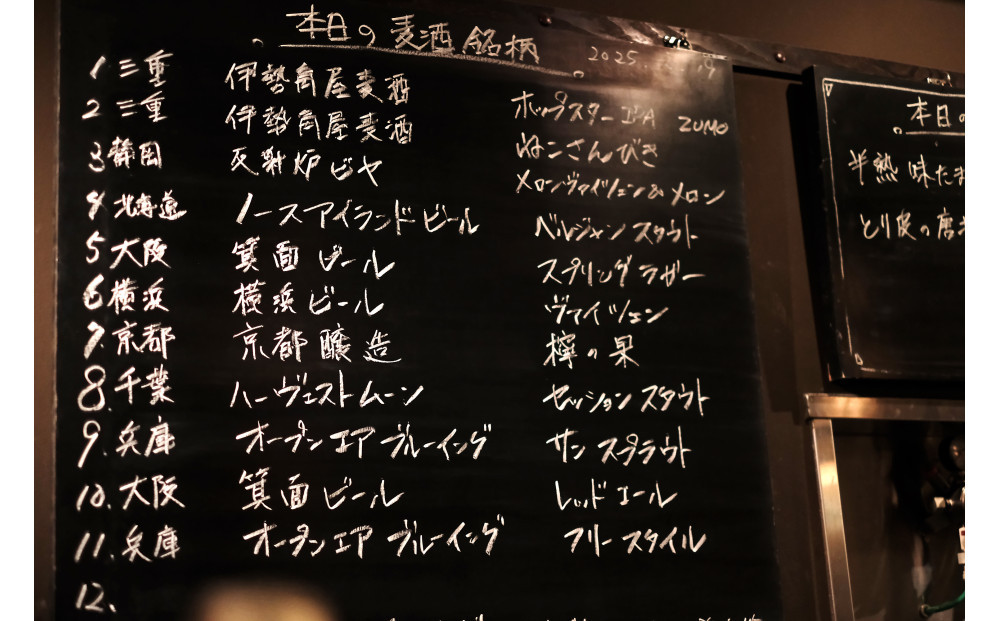 本日の麦酒銘柄 2025 .9
1 三重 伊勢角屋麦酒 ホップスターIPA ZUMO
2 三重 伊勢角屋麦酒 ぬこさんびき
3 静岡 反射炉ビヤ メロンヴァイツェン&メロン
4 北海道 ノースアイランドビール ベルジャンスタウト
5 大阪 箕面ビール スプリングラガー
6 横浜 横浜ビール ヴァイツェン
7. 京都 京都醸造 檸の果
8. 千葉 ハーヴェストムーン セッションスタウト
9. 兵庫 オープンエアブルーイング サンスプラウト
10. 大阪 箕面ビール レッドエール
11. 兵庫 オープンエアブルーイング フリースタイル
12.
本日の
半熟味たま
とり皮の唐